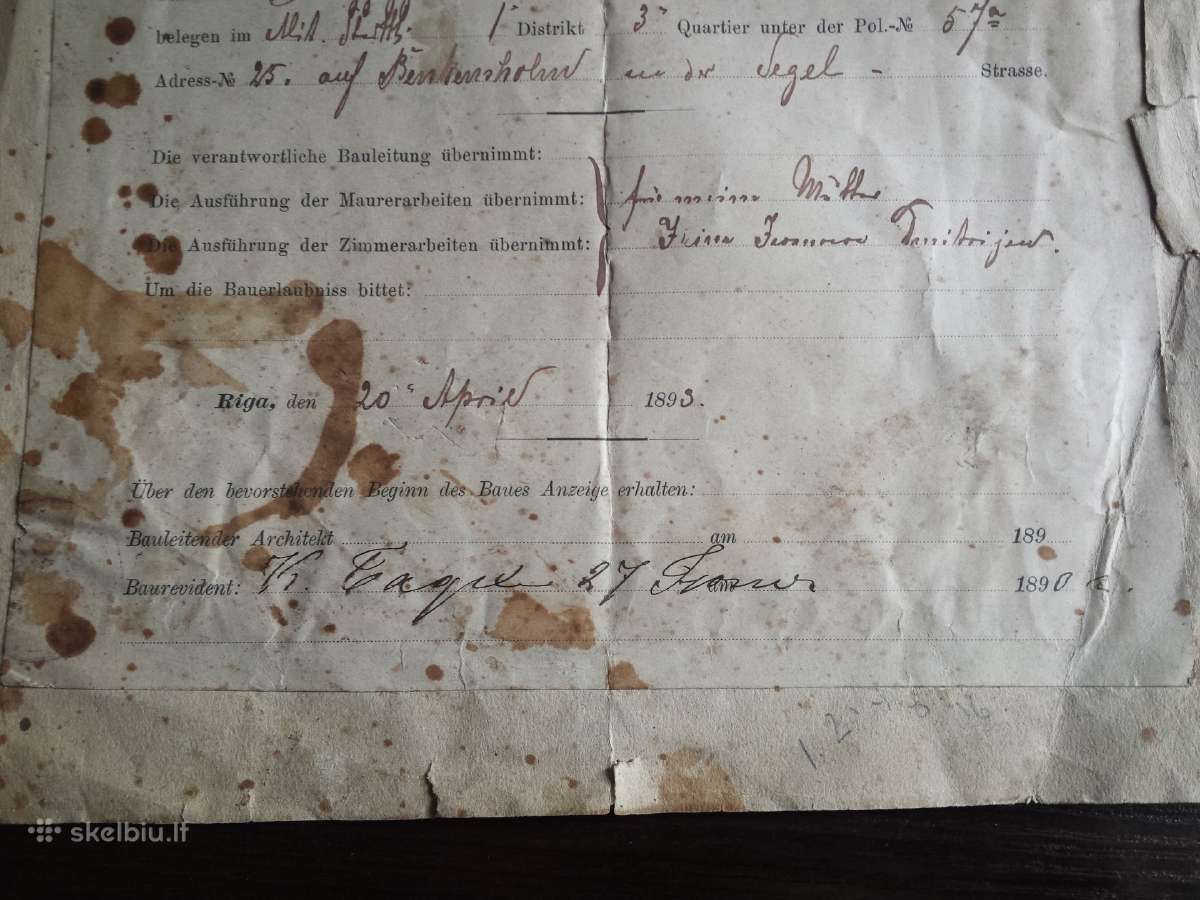 belegen im Mit. Stdtth. 1 Distrikt 3 Quartier unter der Pol.-№ 57a
Adress-№ 25. auf Benkensholm an der Segel - Strasse.
Die verantwortliche Bauleitung übernimmt:
Die Ausführung der Maurerarbeiten übernimmt: für meine Mutter
Die Ausführung der Zimmerarbeiten übernimmt: Irina Iwanowa Dmitrijew.
Um die Bauerlaubniss bittet:
Riga, den 20 April 1893.
Über den bevorstehenden Beginn des Baues Anzeige erhalten:
Bauleitender Architekt am 189
Baurevident: 27 am 1890
skelbiu.lt